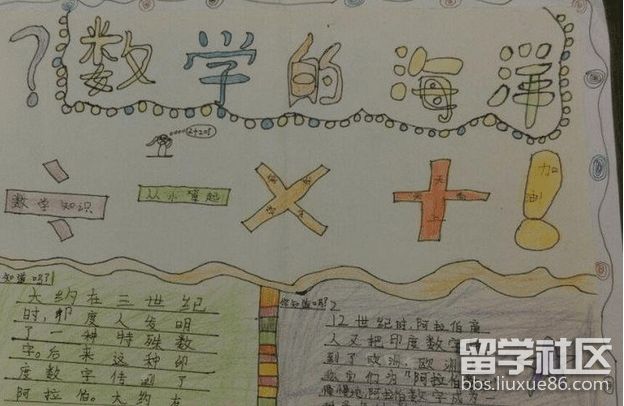 ?数学的海洋
2+2=?
数学知识
从小算起
天
上
加
油
知道吗?
大约在三世纪
时,印度人发明
了一种特殊数
字。后来这种印
度数字传到了
阿拉伯。大约在
你知道吗?2
12世纪时,阿拉伯商
人又把印度数字
到了欧洲,欧洲
数字们为"阿拉伯
慢慢地,阿拉伯数字成为一
留学社区
bbs.liuxue86.com